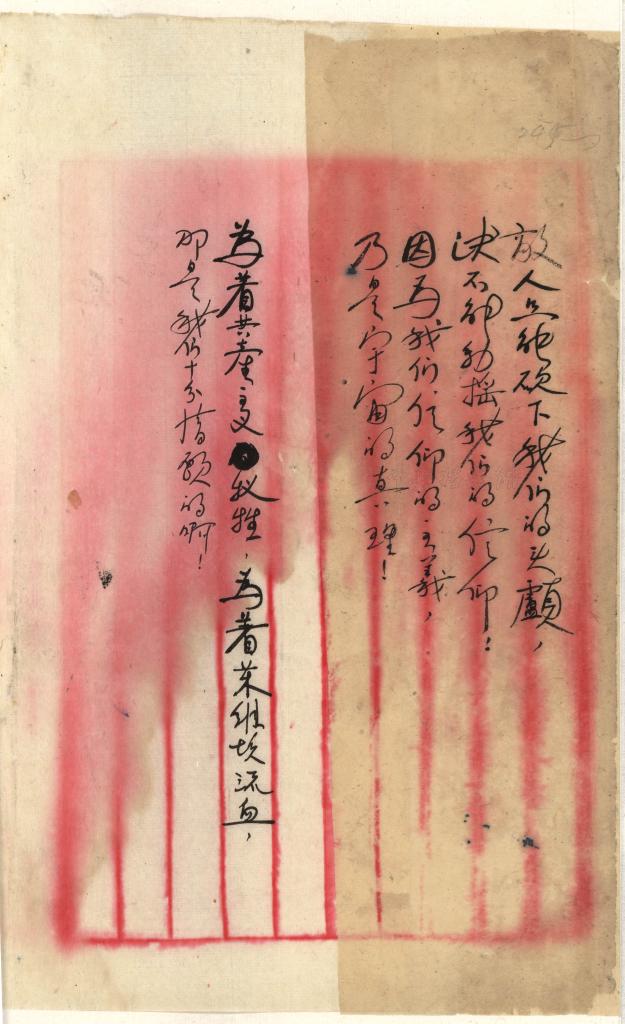 敵人只能砍下我们的头顱，
决不能动摇我们的信仰！
因為我们信仰的主義，
乃是宇宙的真理！
為着共產主义牺牲，為着苏维埃流血，
那是我们十分情愿的啊！